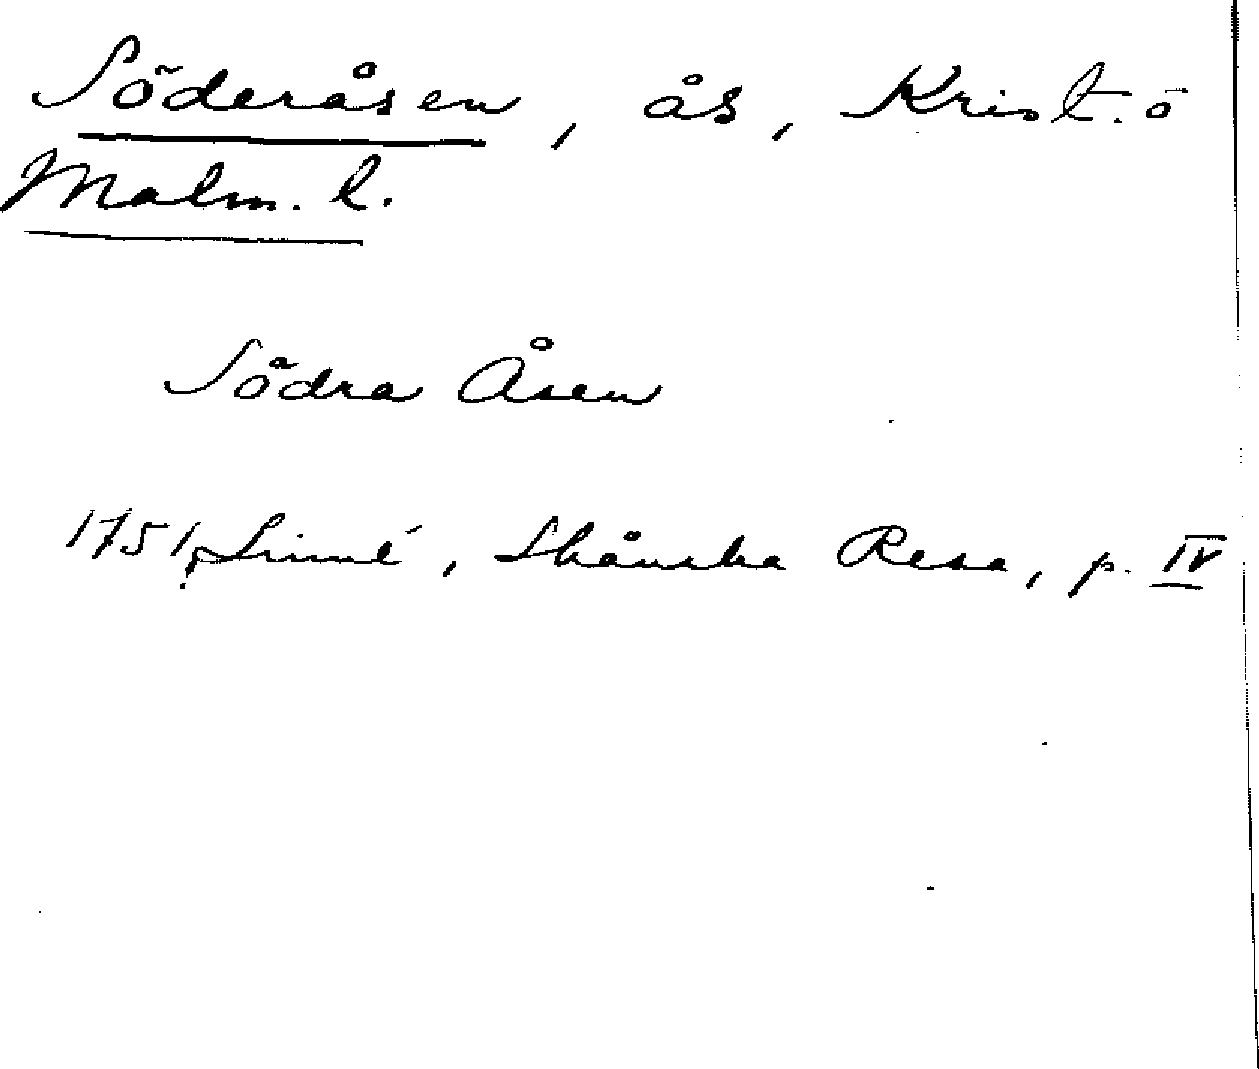 Söderåsen, ås, Krist. o
Malm. l.
Södra Åsen
1751, Linné, Skånska Resa, p. IV